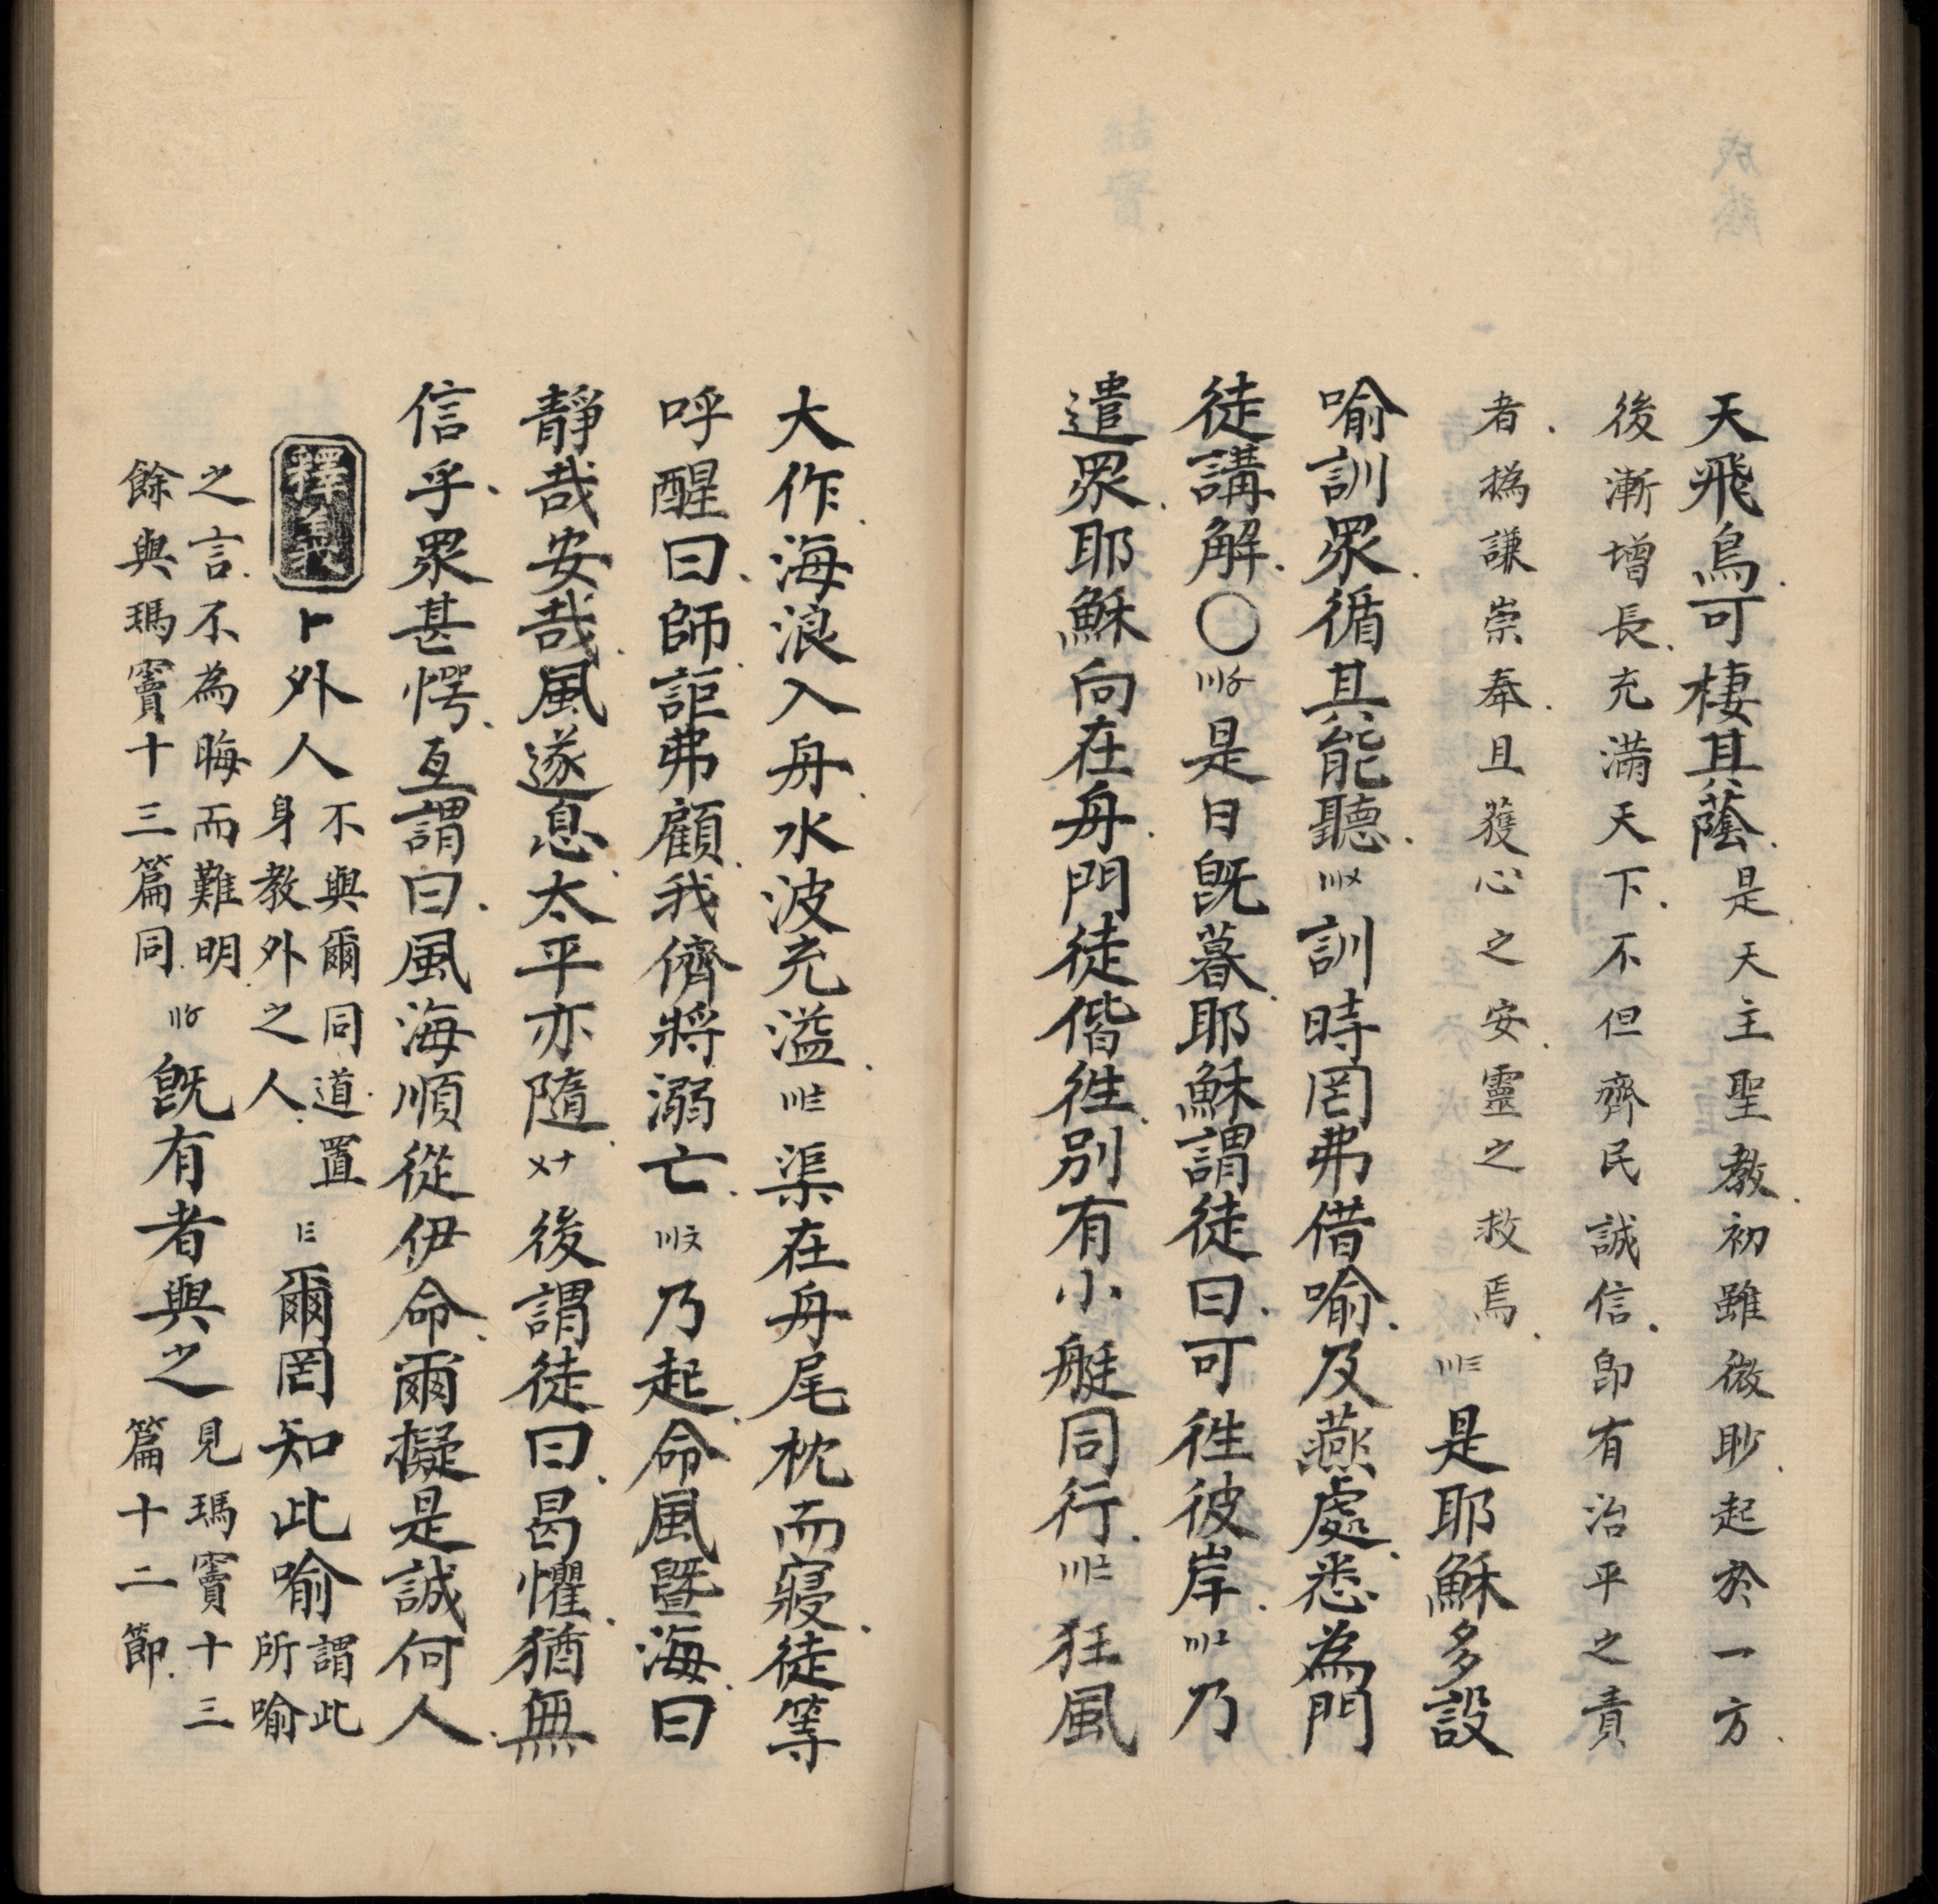 天飛鳥可棲其蔭是天主聖教初雖微眇起於一方
後漸增長充滿天下不但齊民誠信即有治平之責
者撝謙崇奉且獲心之安靈之救焉〣三是耶穌多設
喻訓眾循其能聽〣〤訓時罔弗借喻及燕處悉為門
徒講解〇〣〥是日既暮耶穌謂徒曰可徃彼岸〣〦乃
遣眾耶穌向在舟門徒偕徃別有小艇同行〣〧狂風
大作海浪入舟水波充溢〣〨渠在舟尾枕而寢徒等
呼醒曰師詎弗顧我儕將溺亡〣〩乃起命風暨海曰
靜哉安哉風遂息太平亦隨〤十後謂徒曰曷懼猶無
信乎眾甚愕互謂曰風海順從伊命爾擬是誠何人
釋義〡〦外人不與爾同道置身教外之人〡三爾罔知此喻謂此所喻
之言不為晦而難明餘與瑪竇十三篇同〢〥既有者與之見瑪竇十三篇十二節